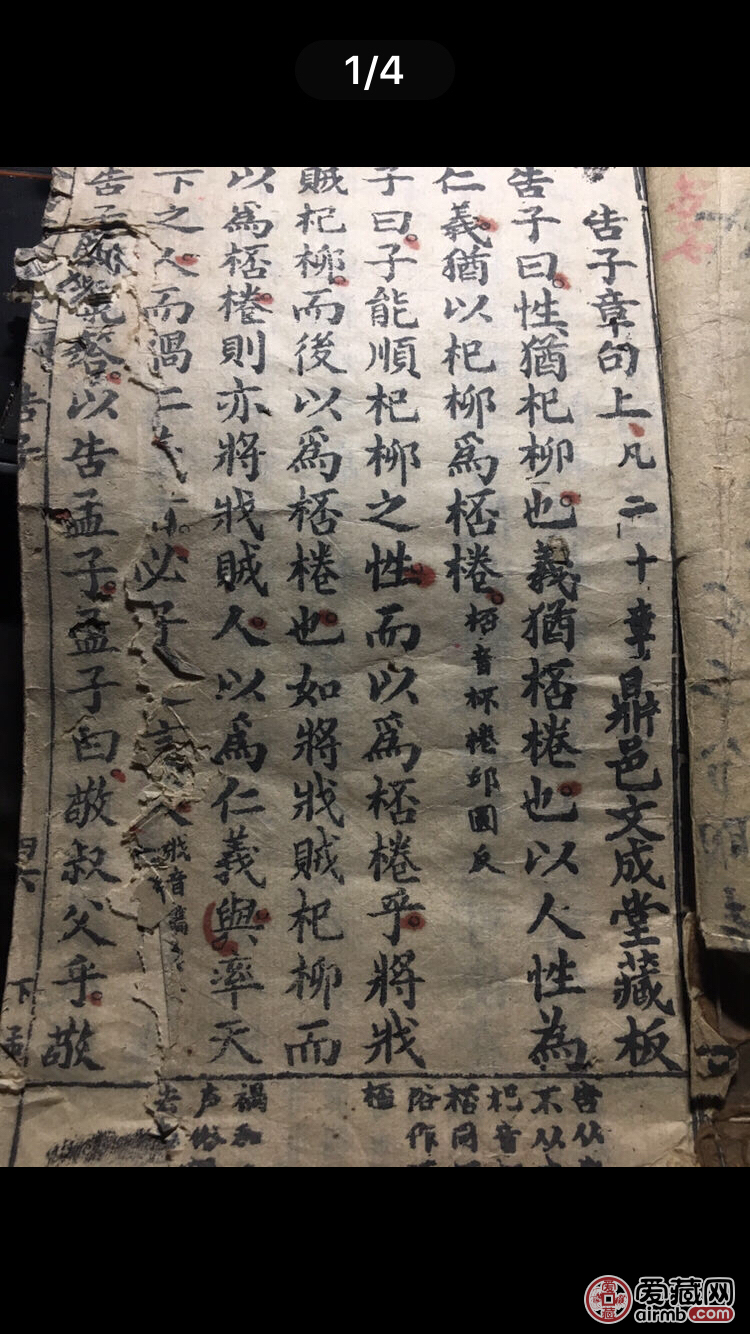 1/4
告子章句上凡二十章鼎邑文成堂藏板
告子曰性猶杞柳也義猶桮棬也以人性為
仁義猶以杞柳為桮棬桮音杯棬邱圓反
子曰子能順杞柳之性而以為桮棬乎將戕
賊杞柳而後以為桮棬也如將戕賊杞柳而
以為桮棬則亦將戕賊人以為仁義與率天
下之人而禍仁義必子言夫戕音
告子以告孟子孟子曰敬叔父乎敬
告子
四六
下孟
害从
不从
杞音
桮同
俗作
極
禍和
声俗
去
爱藏网
airmb.com